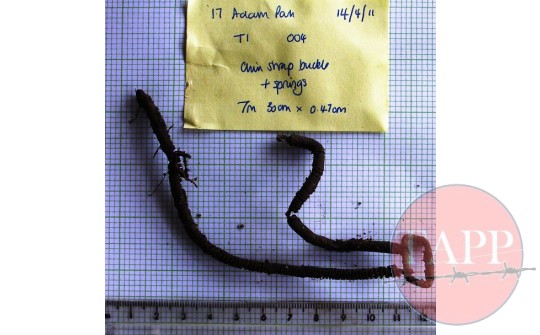 17 Adam Park 14/4/11
T1 004
Chin strap buckle
+ springs
7m 30cm × 0.47cm
FAPP
1 2 3 4 5 6 7 8 9 10 11 12